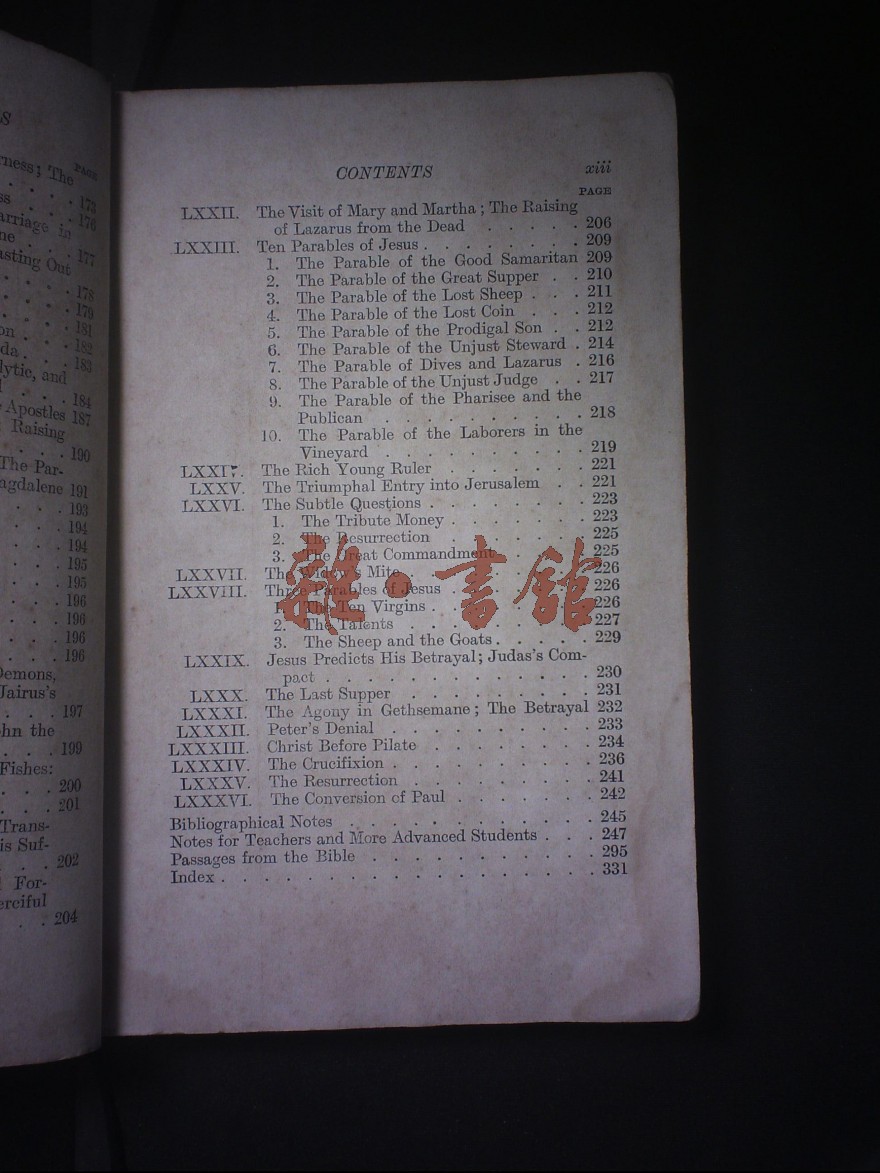 S
PAGE
ness; The
173
ss . . . 176
arriage in
ne . . . 177
asting Out
. . . . 178
. . . . 179
. . . . 181
on . . . 182
da . . . 183
lytic, and
. . . 184
Apostles 187
Raising
. . . 190
The Par-
agdalene 191
. . . 193
. . . 194
. . . 194
. . . 195
. . . 195
. . . 196
. . . 196
. . . 196
. . . 196
Demons,
Jairus's
. . . 197
hn the
. . . 199
Fishes:
. . . 200
. . . 201
Trans-
is Suf-
. . . 202
For-
erciful
. . 204
CONTENTS xiii
PAGE
LXXII. The Visit of Mary and Martha; The Raising
of Lazarus from the Dead . . . . . 206
LXXIII. Ten Parables of Jesus . . . . . . . . 209
1. The Parable of the Good Samaritan 209
2. The Parable of the Great Supper . . 210
3. The Parable of the Lost Sheep . . . 211
4. The Parable of the Lost Coin . . . 212
5. The Parable of the Prodigal Son . . 212
6. The Parable of the Unjust Steward . 214
7. The Parable of Dives and Lazarus . 216
8. The Parable of the Unjust Judge . . 217
9. The Parable of the Pharisee and the
Publican . . . . . . . . . . 218
10. The Parable of the Laborers in the
Vineyard . . . . . . . . . . 219
LXXIV. The Rich Young Ruler . . . . . . . 221
LXXV. The Triumphal Entry into Jerusalem . . 221
LXXVI. The Subtle Questions . . . . . . . . 223
1. The Tribute Money . . . . . . . 223
2. The Resurrection . . . . . . . 225
3. The Great Commandment . . . . . 225
LXXVII. The Widow's Mite . . . . . . . . 226
LXXVIII. Three Parables of Jesus . . . . . . . 226
1. The Ten Virgins . . . . . . . . 226
2. The Talents . . . . . . . . . 227
3. The Sheep and the Goats . . . . . 229
LXXIX. Jesus Predicts His Betrayal; Judas's Com-
pact . . . . . . . . . . . . . 230
LXXX. The Last Supper . . . . . . . . . 231
LXXXI. The Agony in Gethsemane; The Betrayal 232
LXXXII. Peter's Denial . . . . . . . . . . 233
LXXXIII. Christ Before Pilate . . . . . . . . 234
LXXXIV. The Crucifixion . . . . . . . . . . 236
LXXXV. The Resurrection . . . . . . . . . 241
LXXXVI. The Conversion of Paul . . . . . . . 242
Bibliographical Notes . . . . . . . . . . . . 245
Notes for Teachers and More Advanced Students . . . 247
Passages from the Bible . . . . . . . . . . . 295
Index . . . . . . . . . . . . . . . . . . 331
雜·書館